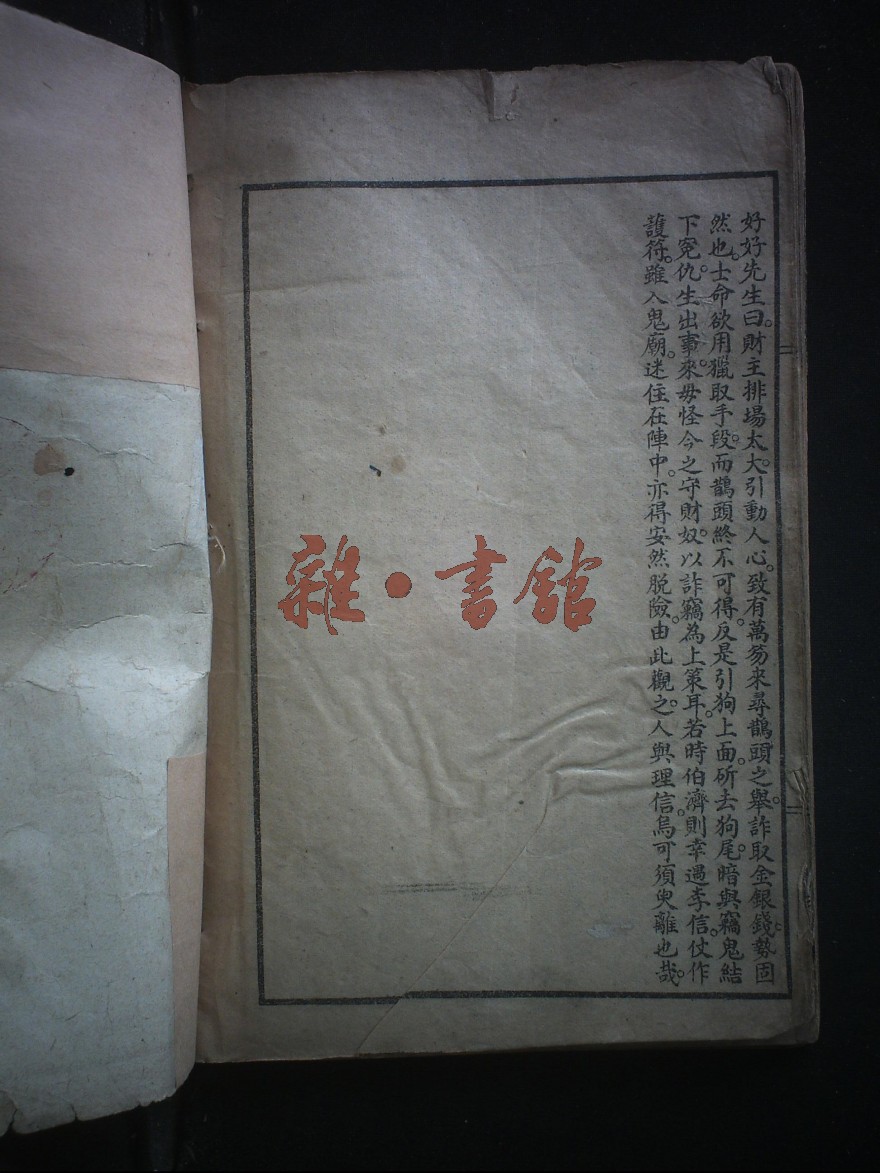 好好先生曰。財主排場太大。引動人心。致有萬笏來尋鵲頭之舉。詐取金銀錢。勢固
然也。士命欲用獵取手段。而鵲頭終不可得。反是引狗上面。斫去狗尾。暗與竊鬼結
下冤仇。生出事來。毋怪今之守財奴。以詐竊為上策耳。若時伯濟則幸遇李信。仗作
護符。雖入鬼廟。迷住在陣中。亦得安然脫險。由此觀之。人與理信。烏可須臾離也哉。
雜·書館